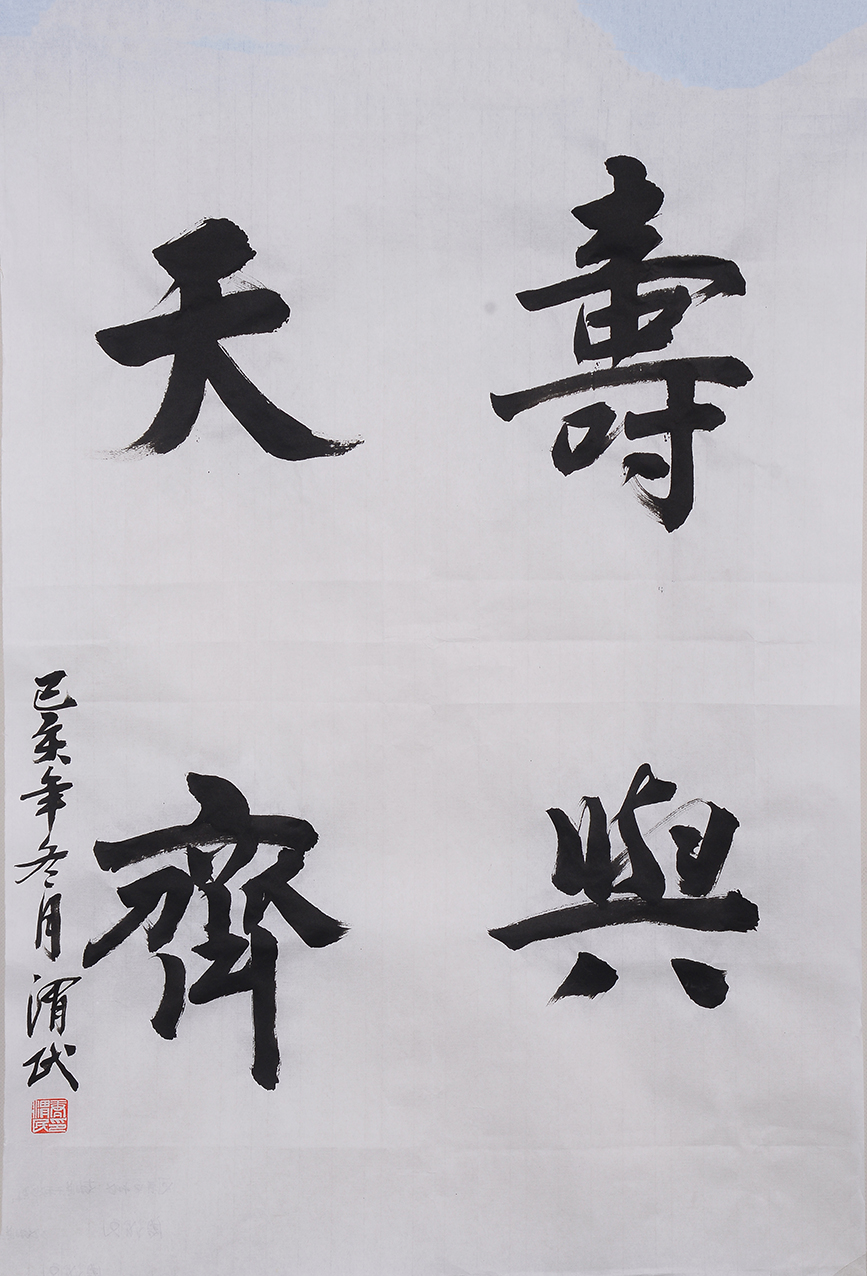 壽與
天齊
己亥年冬月渭民